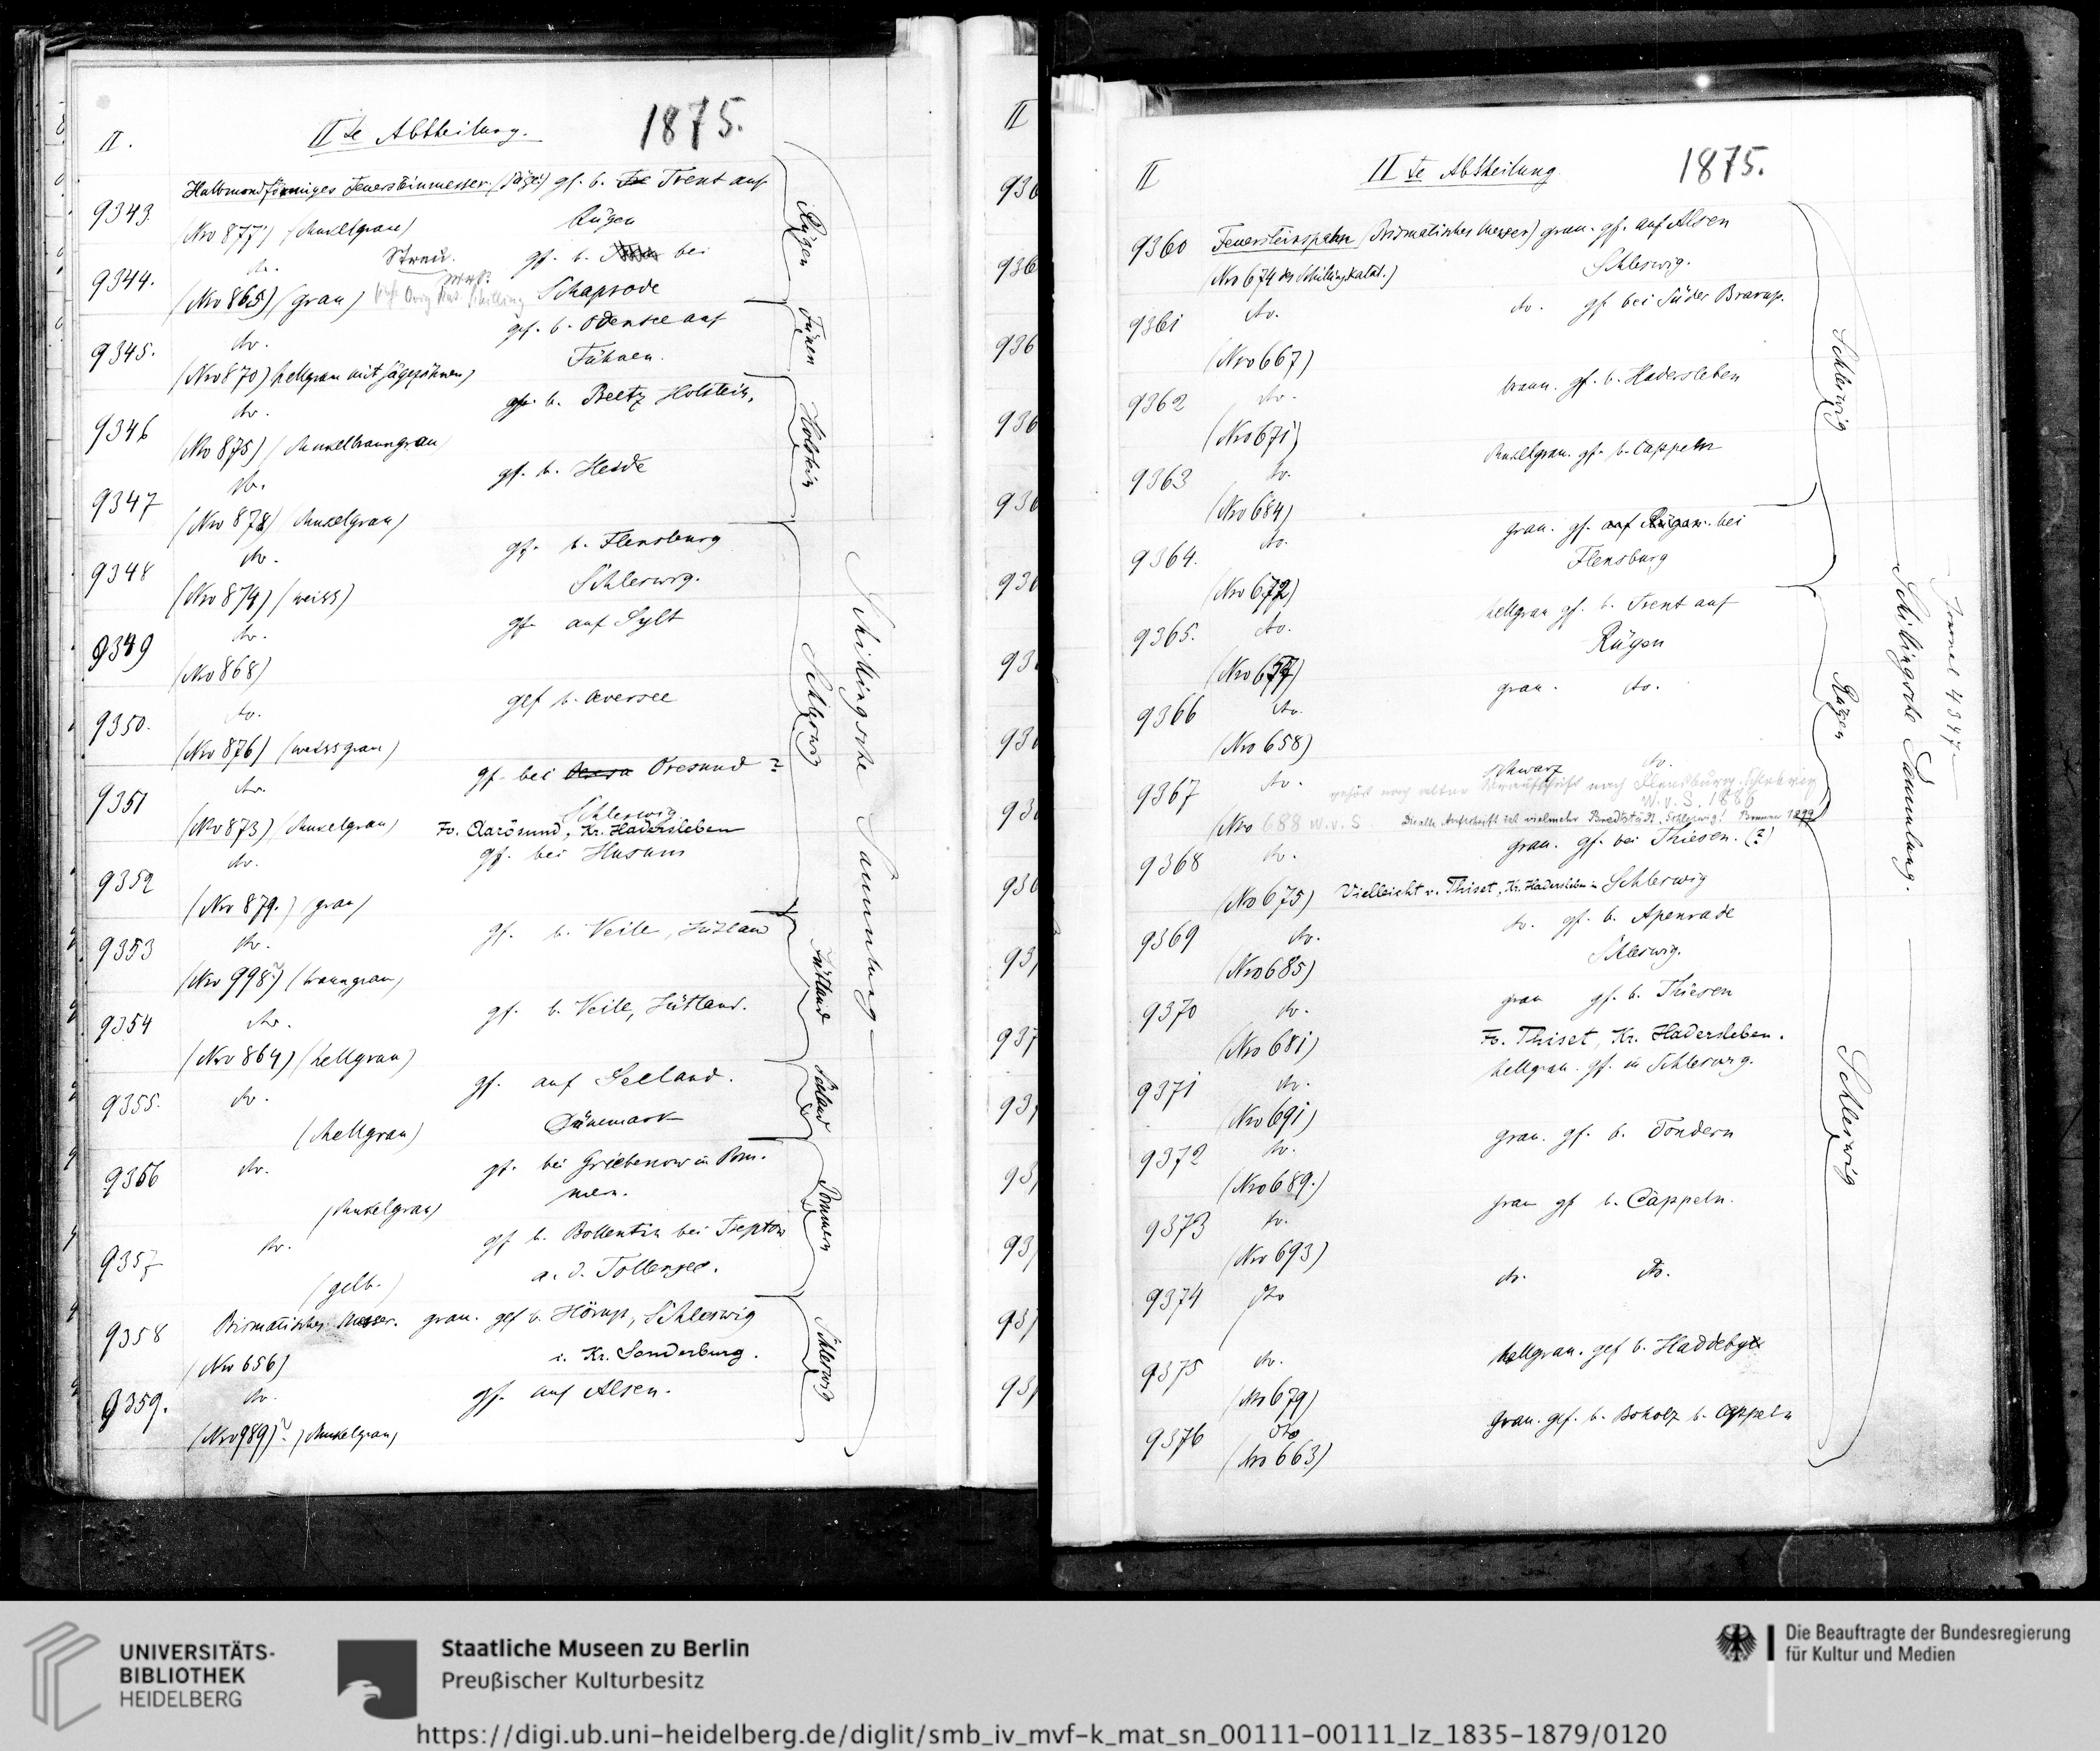 II.
IIte Abtheilung.
1875.
9343.
Halbmondförmiges Feuersteinmesser. (Säge) gf. b. Trent auf
Rügen
(Nro 877) (dunkelgrau)
9344.
do.
Streu.
gf. b. bei
Schaprode
(Nro 865) (grau)
9345.
do.
gef. b. Odensee auf
Fühnen.
(Nro 870) hellgrau mit Sägezähnen)
9346
do.
gf. b. Preetz Holstein.
(No 875) (dunkelbraungrau)
9347
do.
gf. b. Heide
(Nro 878) dunkelgrau)
9348
do.
gf. b. Flensburg
Schleswig.
(Nro 874) (weiss)
9349
do.
gf. auf Sylt
(Nro 868)
9350.
do.
gef b. Oversee
(Nro 876) (weissgrau)
9351
do.
gf. bei Oresund ?
Schleswig
(Nro 873) (dunkelgrau)
Fo. Aarösund, Kr. Hadersleben
9352
do.
gf. bei Husum
(Nro 879.) (grau)
9353
do.
gf. b. Veile, Jütland
(Nro 998?) (braungrau)
9354
do.
gf. b. Veile, Jütland.
(Nro 864) (hellgrau)
9355.
do.
gf. auf Seeland.
Dänemark
(hellgrau)
9356
do.
gf. bei Griebenow in Pom-
mern.
(dunkelgrau)
9357
do.
gf b. Bollentin bei Treptow
a. d. Tollensee.
(gelb.)
9358
Prismatisches Messer. grau. gef b. Hörup, Schleswig
i. Kr. Sonderburg.
(Nro 656)
9359.
do.
gf. auf Alsen.
(Nro 989)? (dunkelgrau)
Rügen
Fünen
Holstein
Schleswig
Jütland
Seeland
Pommern
Schleswig
Schillingsche Sammlung
II
IIte Abtheilung
1875.
9360
Feuersteinspahn (Prismatisches Messer) grau. gf. auf Alsen
Schleswig.
(Nro 674 des Schillingkatal.)
9361
do.
do. gf bei Süder Brarup.
(Nro 667)
9362
do.
braun. gf. b. Hadersleben
(Nro 671)
9363
do.
dunkelgrau. gf. b. Cappeln
(Nro 684)
9364.
do.
grau. gf. auf Rügen. bei
Flensburg
(Nro 672)
9365.
do.
hellgrau gf. b. Trent auf
Rügen
(Nro 677)
9366
do.
grau. do.
(Nro 658)
9367
do.
schwarz do.
gehört nach alter Aufschrift nach Flensburg, Schleswig
W. v. S. 1886
(Nro 688 W. v. S
Die alte Aufschrift ist vielmehr Bredstädt, Schleswig!
9368
do.
grau. gf. bei Thiesen. (?)
(No 675) Vielleicht v. Thiset, Kr. Hadersleben in Schleswig
9369
do.
do. gf. b. Apenrade
Schleswig.
(Nro 685)
9370
do.
grau gf. b. Thiesen
(Nro 681)
Fo. Thiset, Kr. Hadersleben.
9371
do.
hellgrau. gf. in Schleswig.
(Nro 691)
9372
do.
grau. gf. b. Tondern
(Nro 689.)
9373
do.
grau gf b. Cappeln.
(Nro 693)
9374
do
do. do.
9375
do.
hellgrau. gef b. Haddebye
(Nro 679)
9376
do
grau. gef. b. Boholz b. Cappeln
(Nro 663)
Schleswig
Rügen
Schleswig
Schillingsche Sammlung.
Journal 4347
UNIVERSITÄTS-
BIBLIOTHEK
HEIDELBERG
Staatliche Museen zu Berlin
Preußischer Kulturbesitz
Die Beauftragte der Bundesregierung
für Kultur und Medien
https://digi.ub.uni-heidelberg.de/diglit/smb_iv_mvf-k_mat_sn_00111-00111_lz_1835-1879/0120